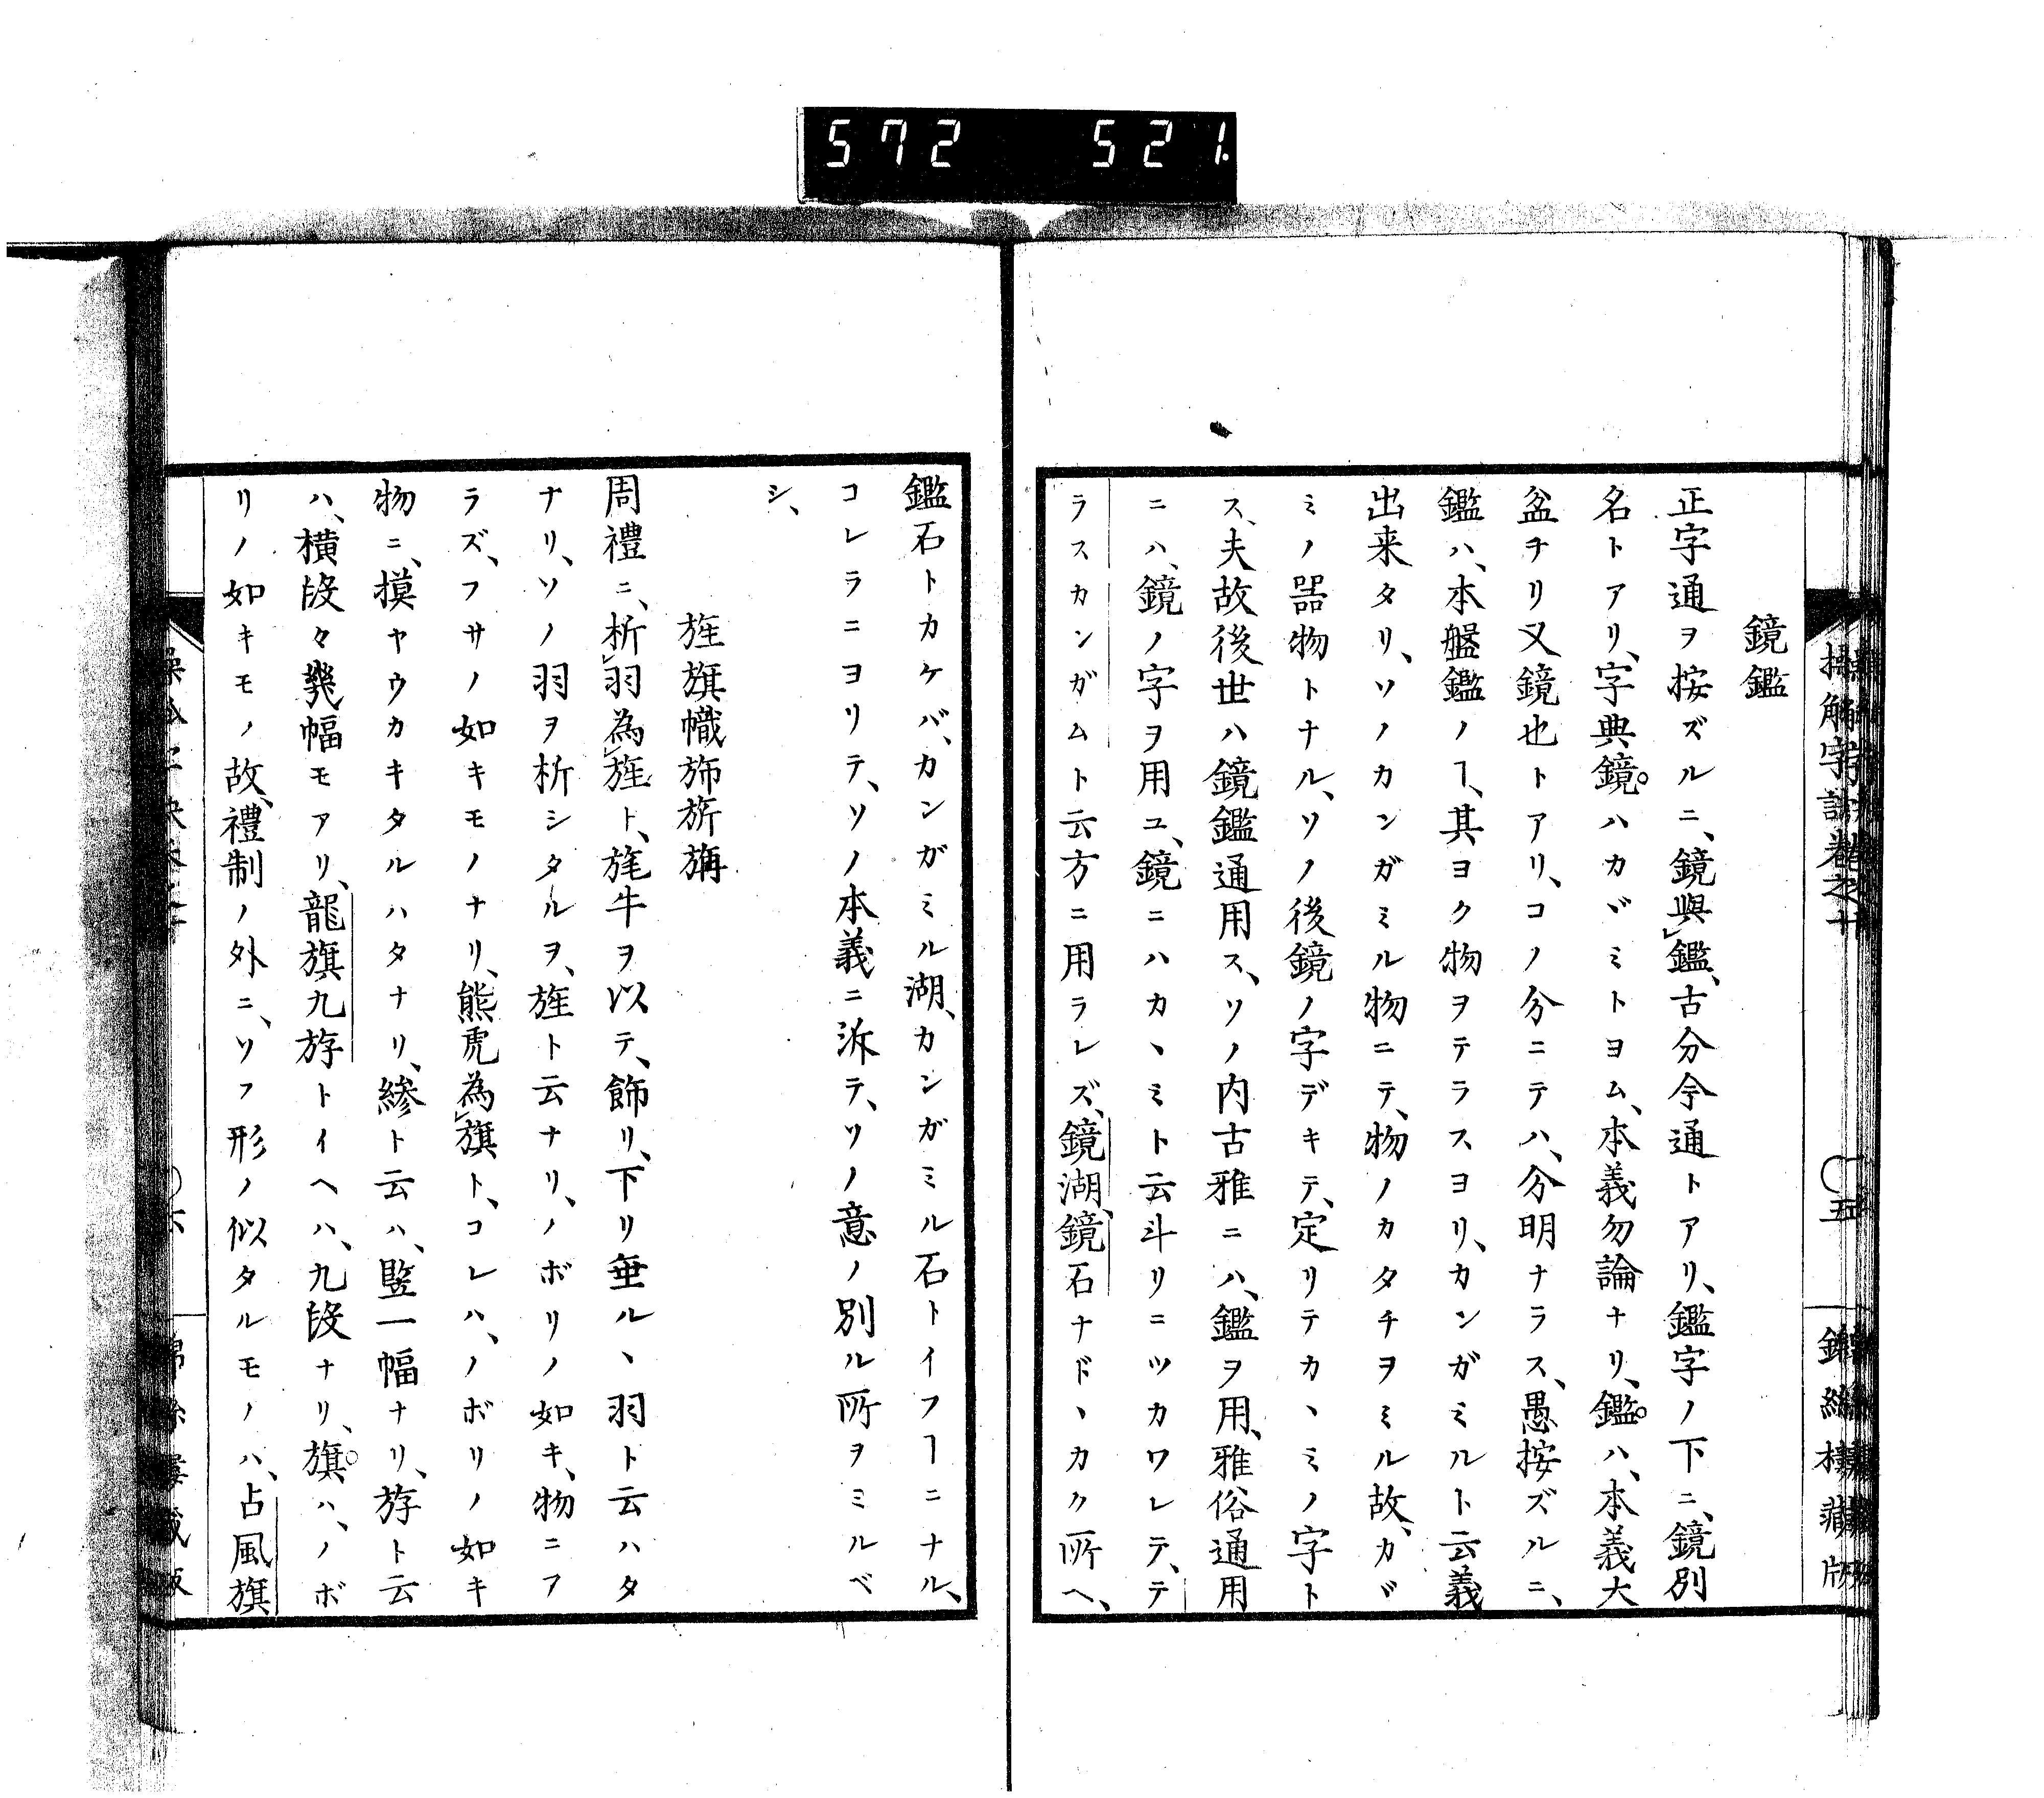 572 521.
鏡鑑
正字通ヲ按ズルニ、鏡與鑑、古分今通トアリ、鑑字ノ下ニ、鏡別
名トアリ、字典鏡ハカヾミトヨム、本義勿論ナリ、鑑ハ、本義大
盆ナリ又鏡也トアリ、コノ分ニテハ、分明ナラス、愚按ズルニ、
鑑ハ、本盤鑑ノヿ、其ヨク物ヲテラスヨリ、カンガミルト云義
出来タリ、ソノカンガミル物ニテ、物ノカタチヲミル故、カヾ
ミノ噐物トナル、ソノ後鏡ノ字デキテ、定リテカヽミノ字ト
ス、夫故後世ハ鏡鑑通用ス、ソノ内古雅ニハ、鑑ヲ用、雅俗通用
ニハ、鏡ノ字ヲ用ユ、鏡ニハカヽミト云斗リニツカワレテ、テ
ラスカンガムト云方ニ用ラレズ、鏡湖、鏡石ナドヽカク所ヘ、
鑑石トカケバ、カンガミル湖、カンガミル石トイフヿニナル、
コレラニヨリテ、ソノ本義ニ泝テ、ソノ意ノ別ル所ヲミルベ
シ、
旌旗幟斾旂旃
周禮ニ、析羽為旌ト、旄牛ヲ以テ、飾リ、下リ垂ルヽ羽ト云ハタ
ナリ、ソノ羽ヲ析シタルヲ、旌ト云ナリ、ノボリノ如キ、物ニフ
ラズ、フサノ如キモノナリ、熊虎為旗ト、コレハ、ノボリノ如キ
物ニ、摸ヤウカキタルハタナリ、縿ト云ハ、竪一幅ナリ、斿ト云
ハ、横段々幾幅モアリ、龍旗九斿トイヘハ、九段ナリ、旗ハ、ノボ
リノ如キモノ故、禮制ノ外ニ、ソフ形ノ似タルモノハ、占風旗